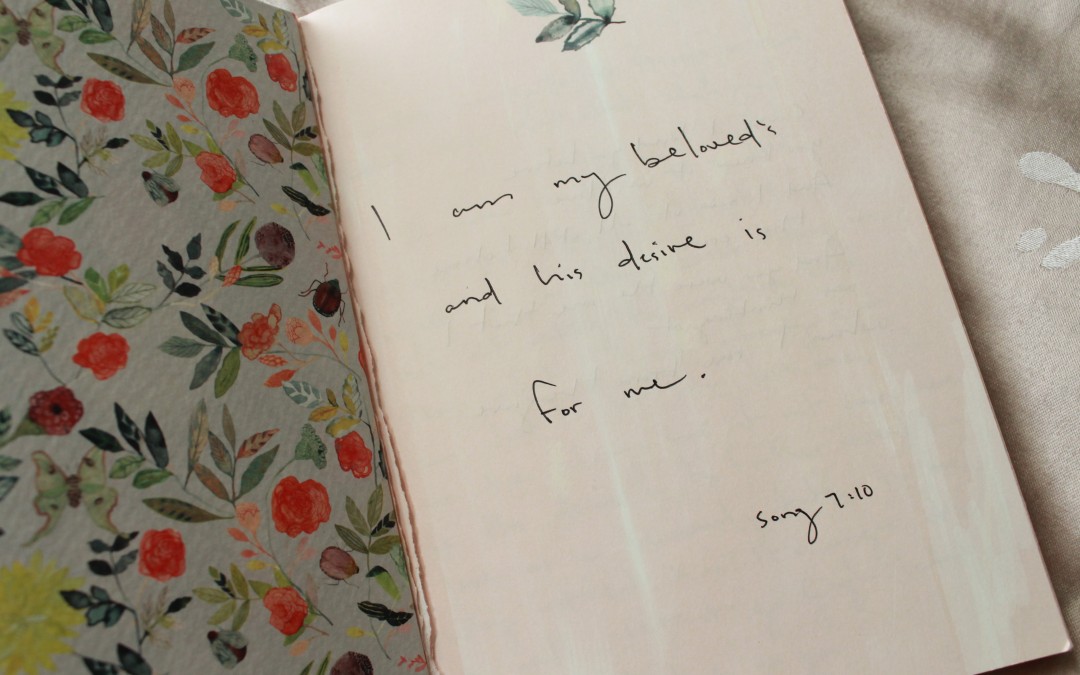 I am my beloved's
and his desire is
for me.
song 7:10